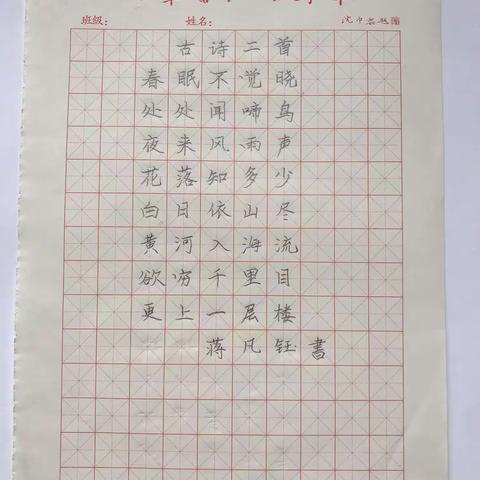 班级: 姓名:
古诗二首
春眠不觉晓
处处闻啼鸟
夜来风雨声
花落知多少
白日依山尽
黄河入海流
欲穷千里目
更上一层楼
蒋凡钰書